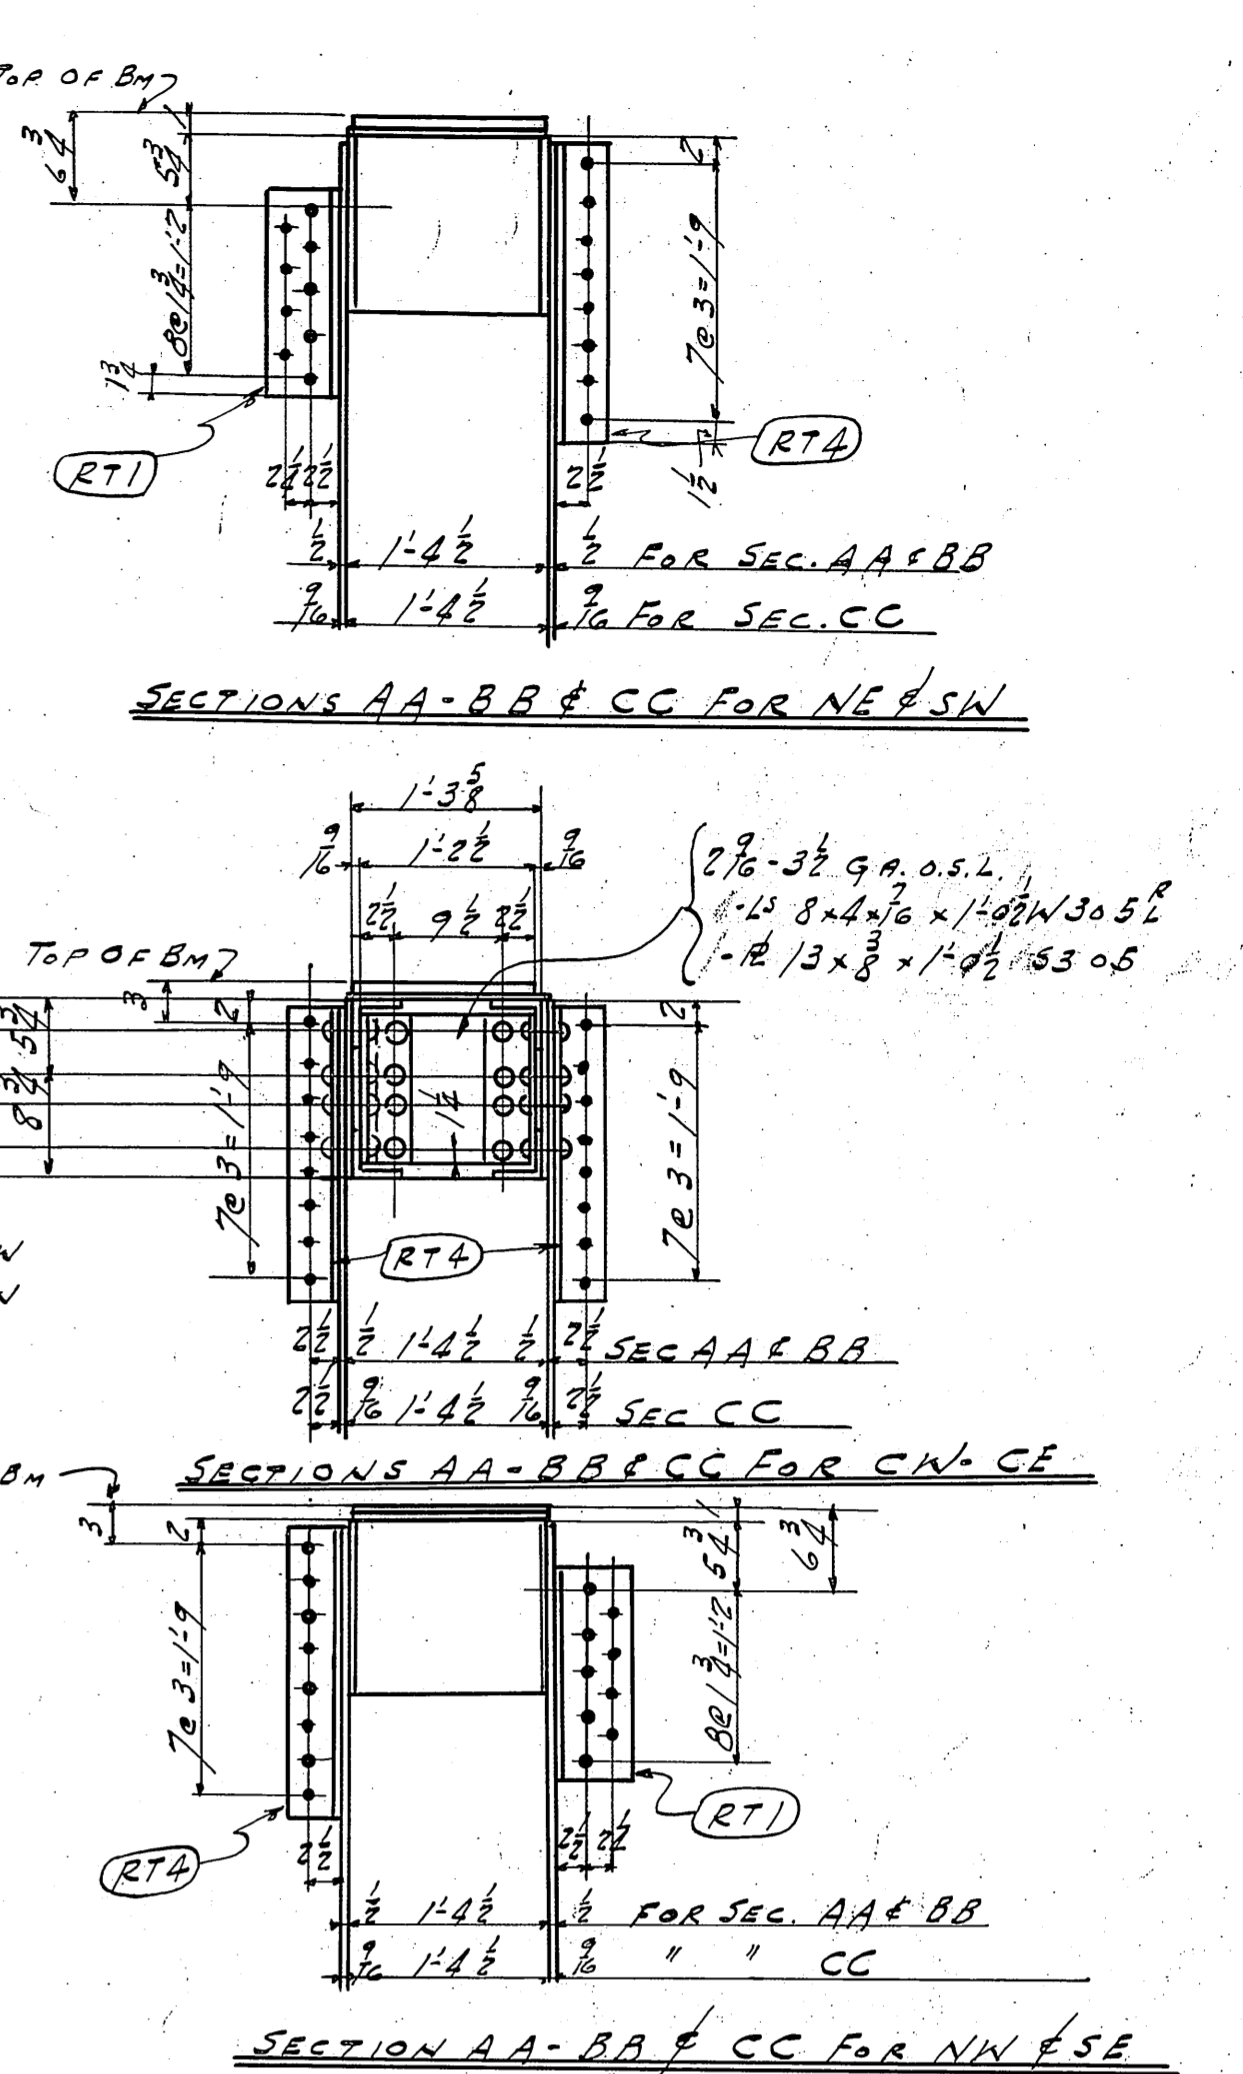 TOP OF BM
6 3/4
1
5 3/4
8@1 3/4=1'-2
1 3/4
2
7@3=1'-9
1 1/2
RT1
RT4
2 1/4 2 1/2
2 1/2
1/2 1'-4 1/2 1/2 FOR SEC. AA & BB
9/16 1'-4 1/2 9/16 FOR SEC. CC
SECTIONS AA-BB & CC FOR NE & SW
1'-3 5/8
9/16 1'-2 1/2 9/16
2 1/2 9 1/2 2 1/2
2 9/16 - 3 1/2 GA. O.S.L.
-LS 8x4x7/16 x 1'-0 1/2 W305 R L
1-PL 13 x 3/8 x 1'-0 1/2 S305
TOP OF BM
3
2
5 3/4
8 3/4
7@3=1'-9
1 1/4
2
7@3=1'-9
RT4
2 1/2 1/2 1'-4 1/2 1/2 2 1/2 SEC AA & BB
2 1/2 9/16 1'-4 1/2 9/16 2 1/2 SEC CC
SECTIONS AA-BB & CC FOR CW-CE
BM
3
2
7@3=1'-9
1
5 3/4
6 3/4
8@1 3/4=1'-2
RT1
RT4
2 1/2
2 1/2 2 1/4
1/2 1'-4 1/2 1/2 FOR SEC. AA & BB
9/16 1'-4 1/2 9/16 " " CC
SECTION AA-BB & CC FOR NW & SE